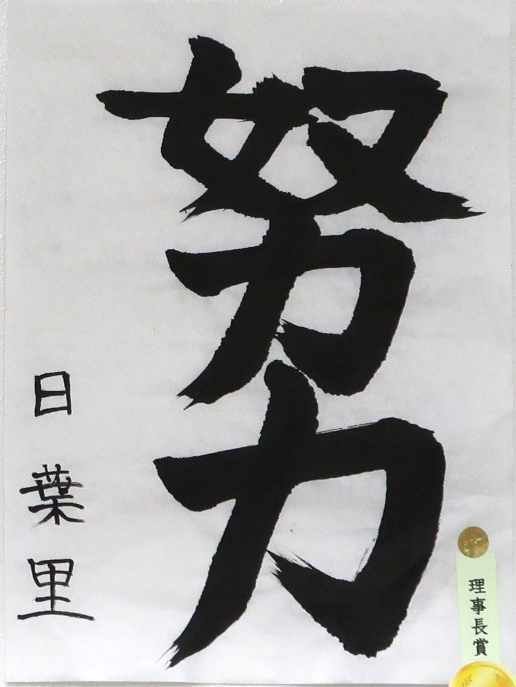 努力
日葉里
理事長賞